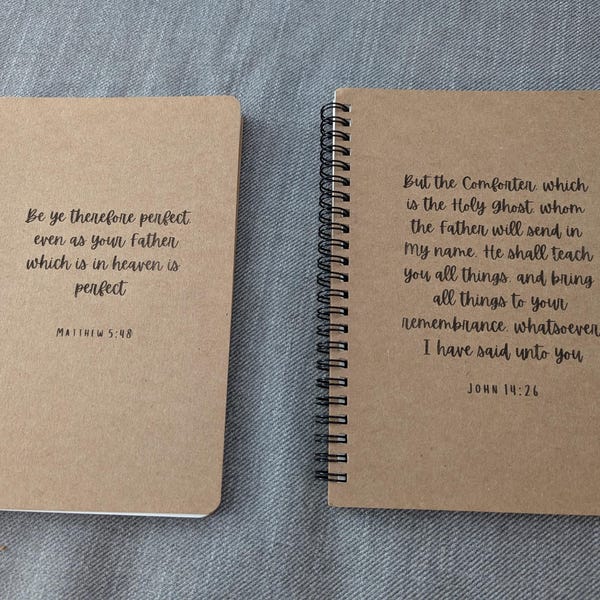 Be ye therefore perfect.
even as your Father
which is in heaven is
perfect
MATTHEW 5:48
But the Comforter, which
is the Holy Ghost, whom
the Father will send in
My name, He shall teach
you all things, and bring
all things to your
remembrance, whatsoever
I have said unto you
JOHN 14:26